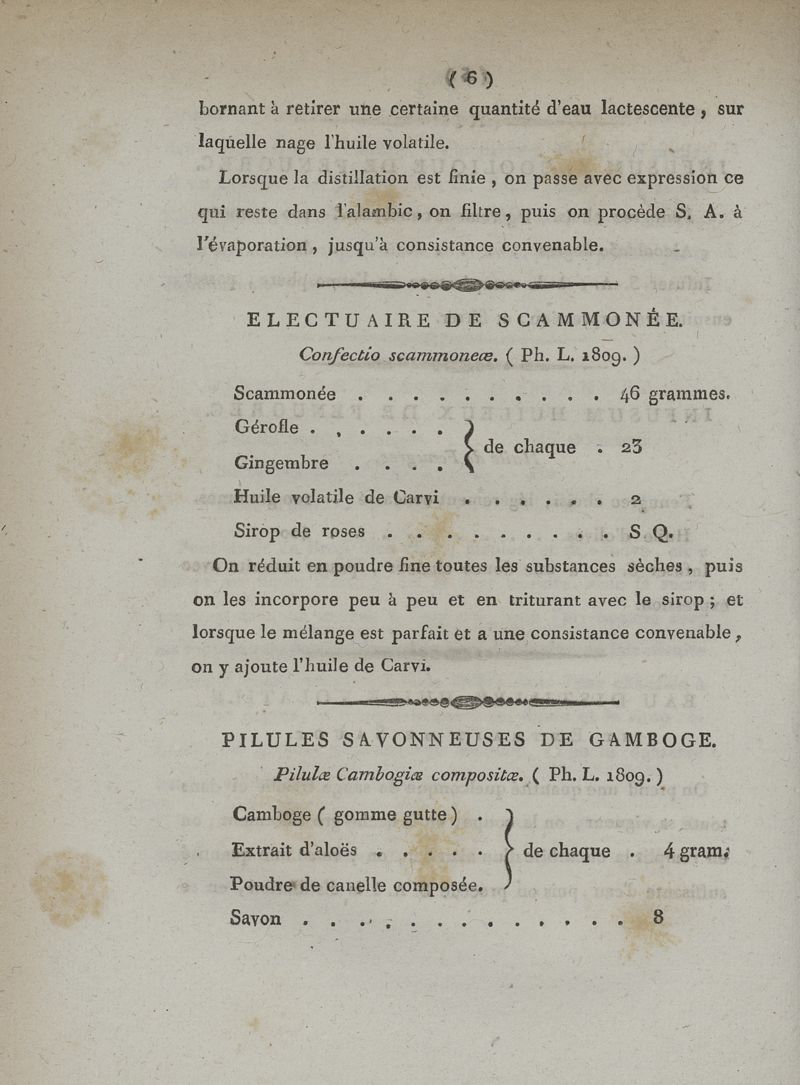 ( 6 )
bornant à retirer une certaine quantité d'eau lactescente , sur
laquelle nage l'huile volatile.
Lorsque la distillation est finie , on passe avec expression ce
qui reste dans l'alambic , on filtre , puis on procède S. A. à
l'évaporation , jusqu'à consistance convenable.
ELECTUAIRE DE SCAMMONÉE.
Confectio scammoneæ. ( Ph. L. 1809. )
Scammonée . . . . . . . . . . 46 grammes.
Gérofle . , . . . . } de chaque . 23
Gingembre . . . .
Huile volatile de Carvi . . . . . . 2
Sirop de roses . . . . . . . . . S. Q.
On réduit en poudre fine toutes les substances sèches , puis
on les incorpore peu à peu et en triturant avec le sirop ; et
lorsque le mélange est parfait et a une consistance convenable ,
on y ajoute l'huile de Carvi.
PILULES SAVONNEUSES DE GAMBOGE.
Pilulæ Cambogiæ compositæ. ( Ph. L. 1809. )
Camboge ( gomme gutte ) .
Extrait d'aloës . . . . . } de chaque . 4 gram.
Poudre de canelle composée.
Savon . . . . . . . . . . . . . 8